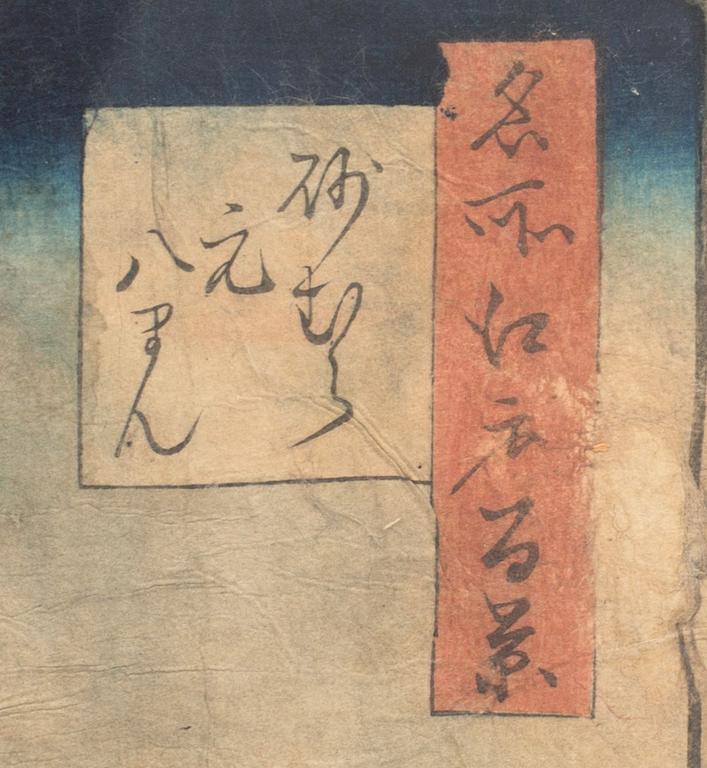 名所江戸百景
砂むら
元
八まん